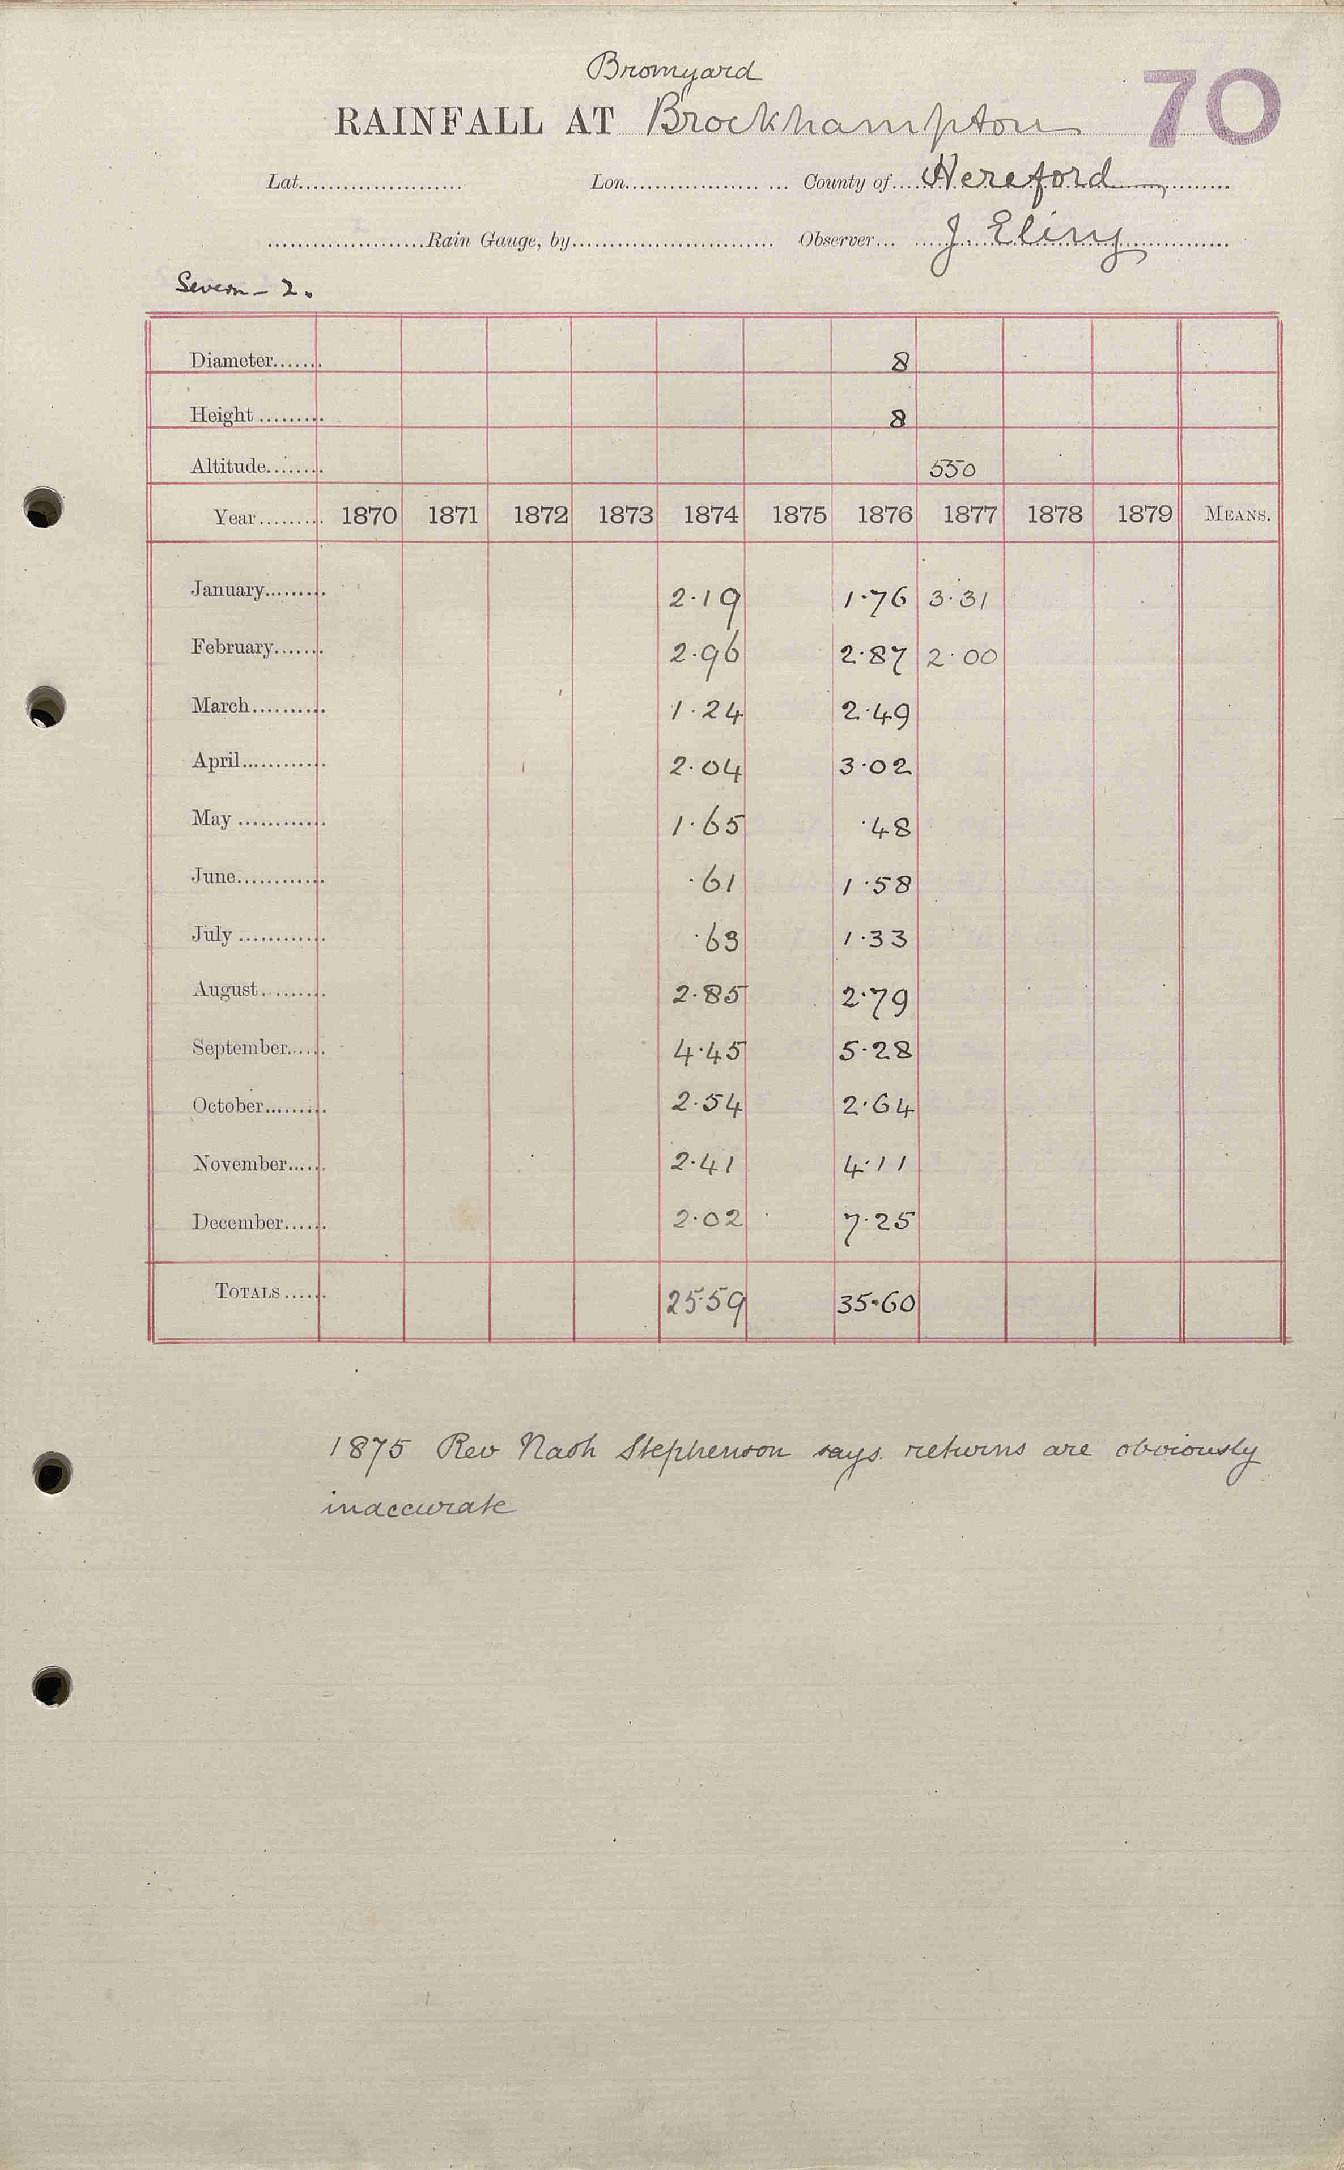 Bromyard
RAINFALL AT Brockhampton 70
Lat. Lon. County of Hereford
Rain Gauge, by Observer J. Eliny
Severn - 2.
Diameter 8
Height 8
Altitude 550
Year 1870 1871 1872 1873 1874 1875 1876 1877 1878 1879 MEANS.
January 2.19 1.76 3.31
February 2.96 2.87 2.00
March 1.24 2.49
April 2.04 3.02
May 1.65 .48
June .61 1.58
July .63 1.33
August 2.85 2.79
September 4.45 5.28
October 2.54 2.64
November 2.41 4.11
December 2.02 7.25
TOTALS 25.59 35.60
1875 Rev Nash Stephenson says returns are obviously
inaccurate